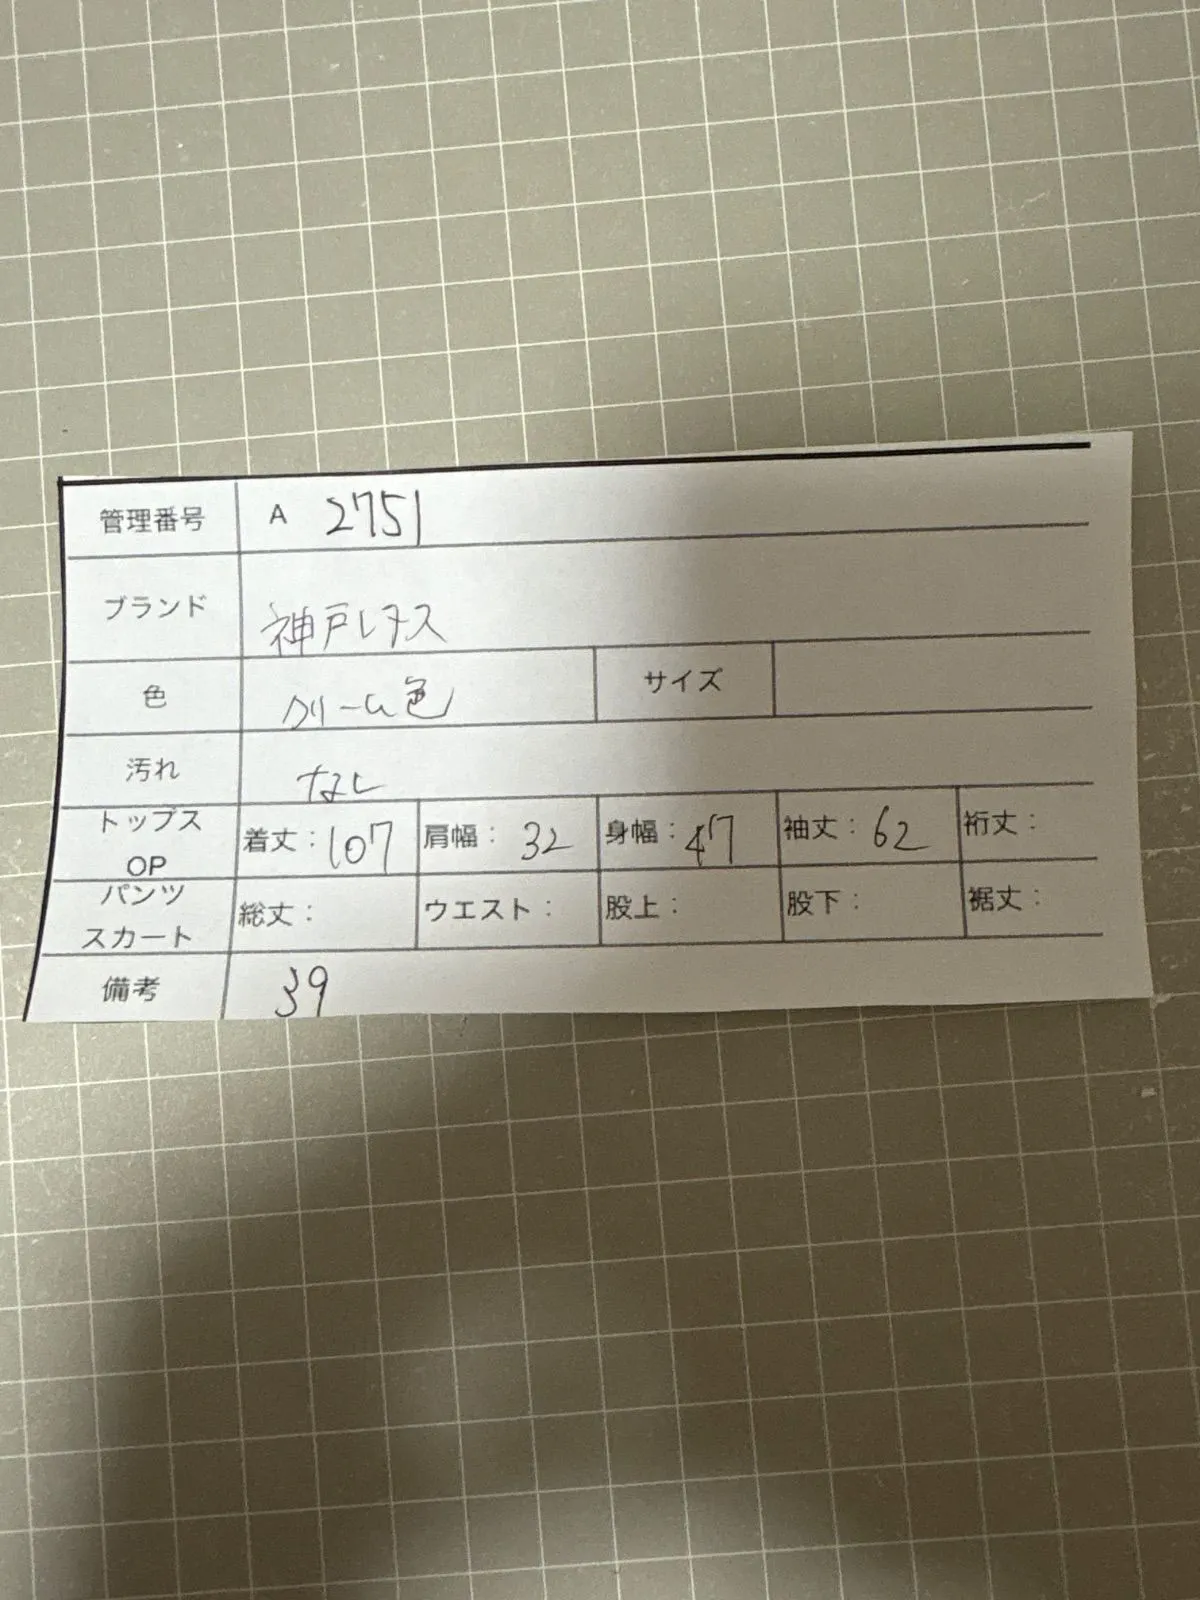 管理番号 A 2751
ブランド 神戸レタス
色 クリーム色 サイズ
汚れ なし
トップス OP 着丈：107 肩幅：32 身幅：47 袖丈：62 裄丈：
パンツ スカート 総丈： ウエスト： 股上： 股下： 裾丈：
備考 39